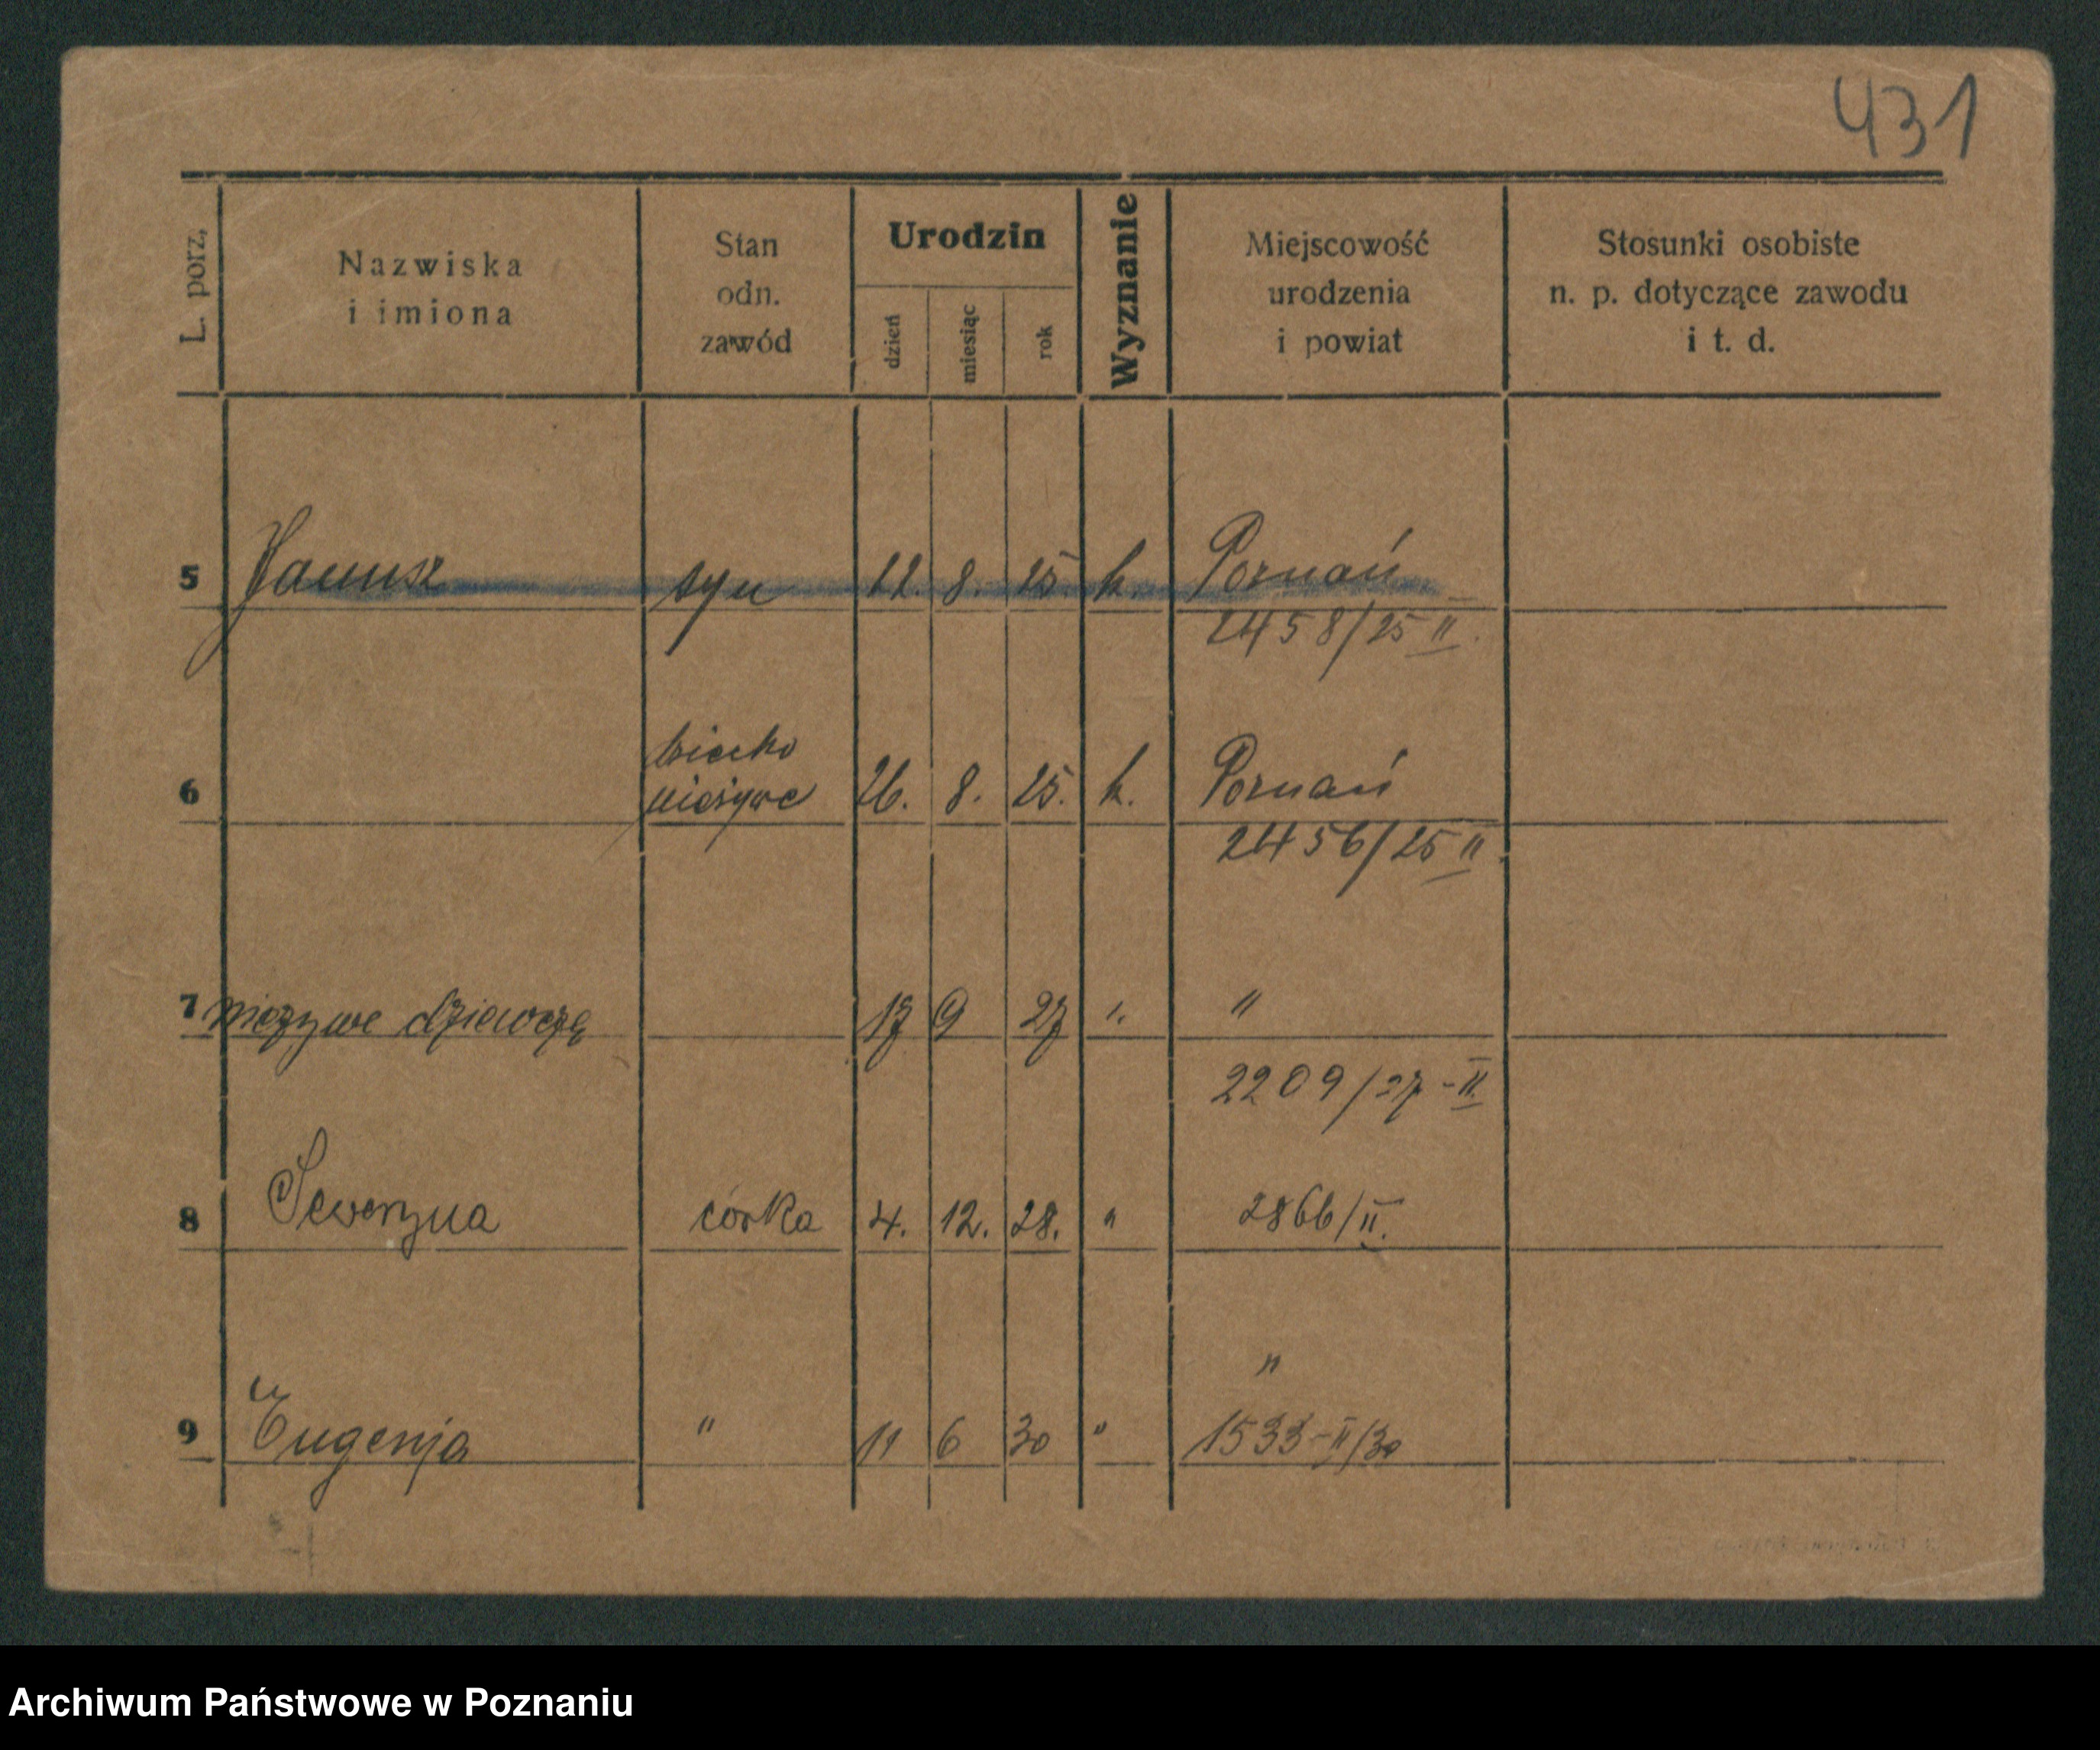 431
L. porz,
Nazwiska
i imiona
Stan
odn.
zawód
Urodzin
dzień
miesiąc
rok
Wyznanie
Miejscowość
urodzenia
i powiat
Stosunki osobiste
n. p. dotyczące zawodu
i t. d.
5 Janusz syn 12. 8. 25 k. Poznań
2458/25 II.
dziecko
6 nieżywe 26. 8. 25. k. Poznań
2456/25 II.
7 nieżywe dziewczę 17 9 27 " "
2209/27-II
8 Seweryna córka 4. 12. 28. " 2866/II.
"
9 Eugenja " 11 6 30 " 1533-II/30
Archiwum Państwowe w Poznaniu